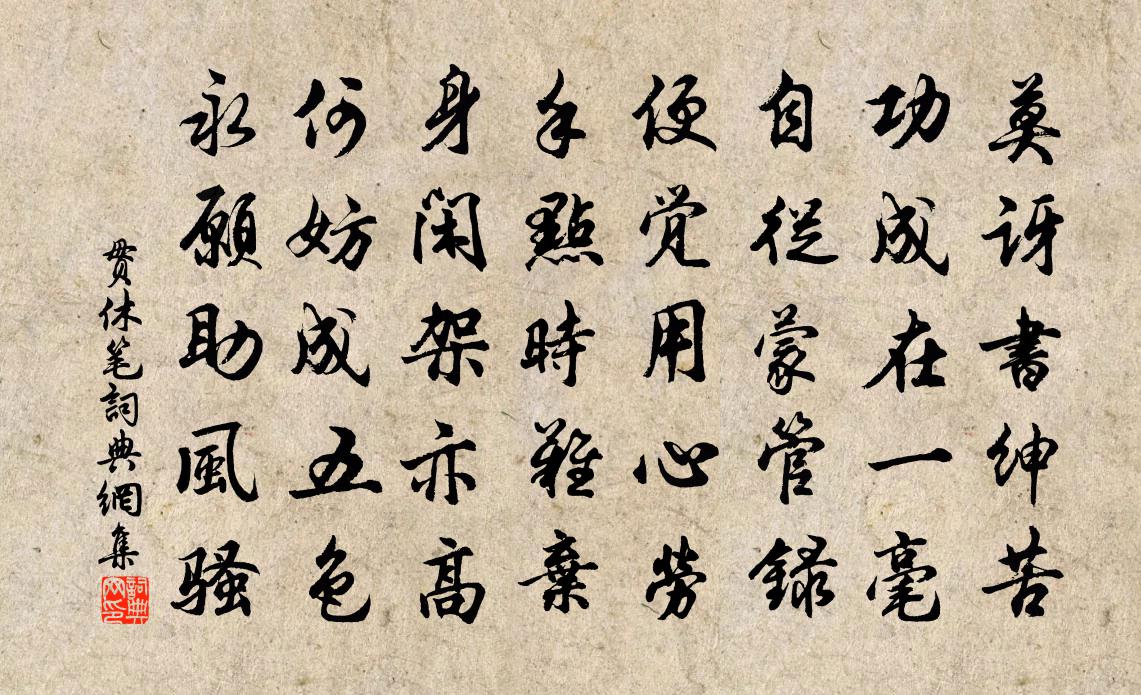 莫訝書紳苦
功成在一毫
自從蒙管錄
便覺用心勞
手點時難棄
身閑架亦高
何妨成五色
永願助風騷
貫休笔詞典網集
詞典
网印